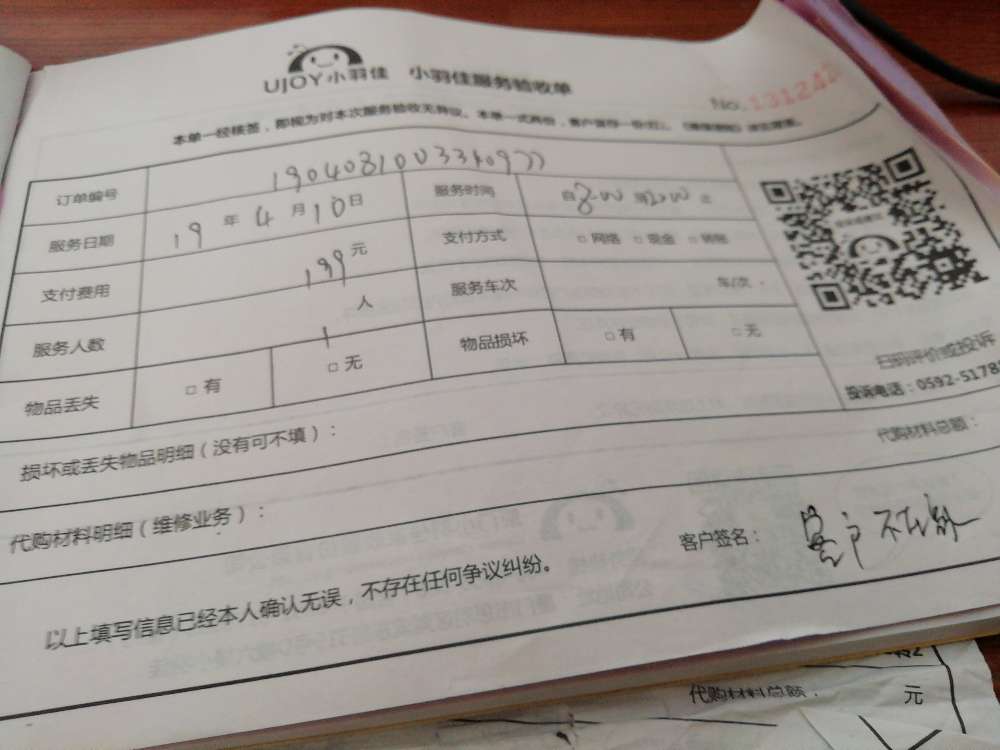 UJOY小羽佳 小羽佳服务验收单
No.131242
本单一经核签，即视为对本次服务验收无异议。本单一式两份，客户留存一份
订单编号
服务日期 19 年 4 月 10 日 服务时间 自 8:00 到 12:00 止
支付费用 199 元 支付方式 □ 网络 □ 现金 □ 转账
服务人数 1 人 服务车次 车/次
物品丢失 □ 有 □ 无 物品损坏 □ 有 □ 无
扫码评价或投诉
投诉电话：0592-5178
损坏或丢失物品明细（没有可不填）：
代购材料明细（维修业务）： 代购材料总额：
以上填写信息已经本人确认无误，不存在任何争议纠纷。 客户签名： 客户不在
代购材料总额： 元